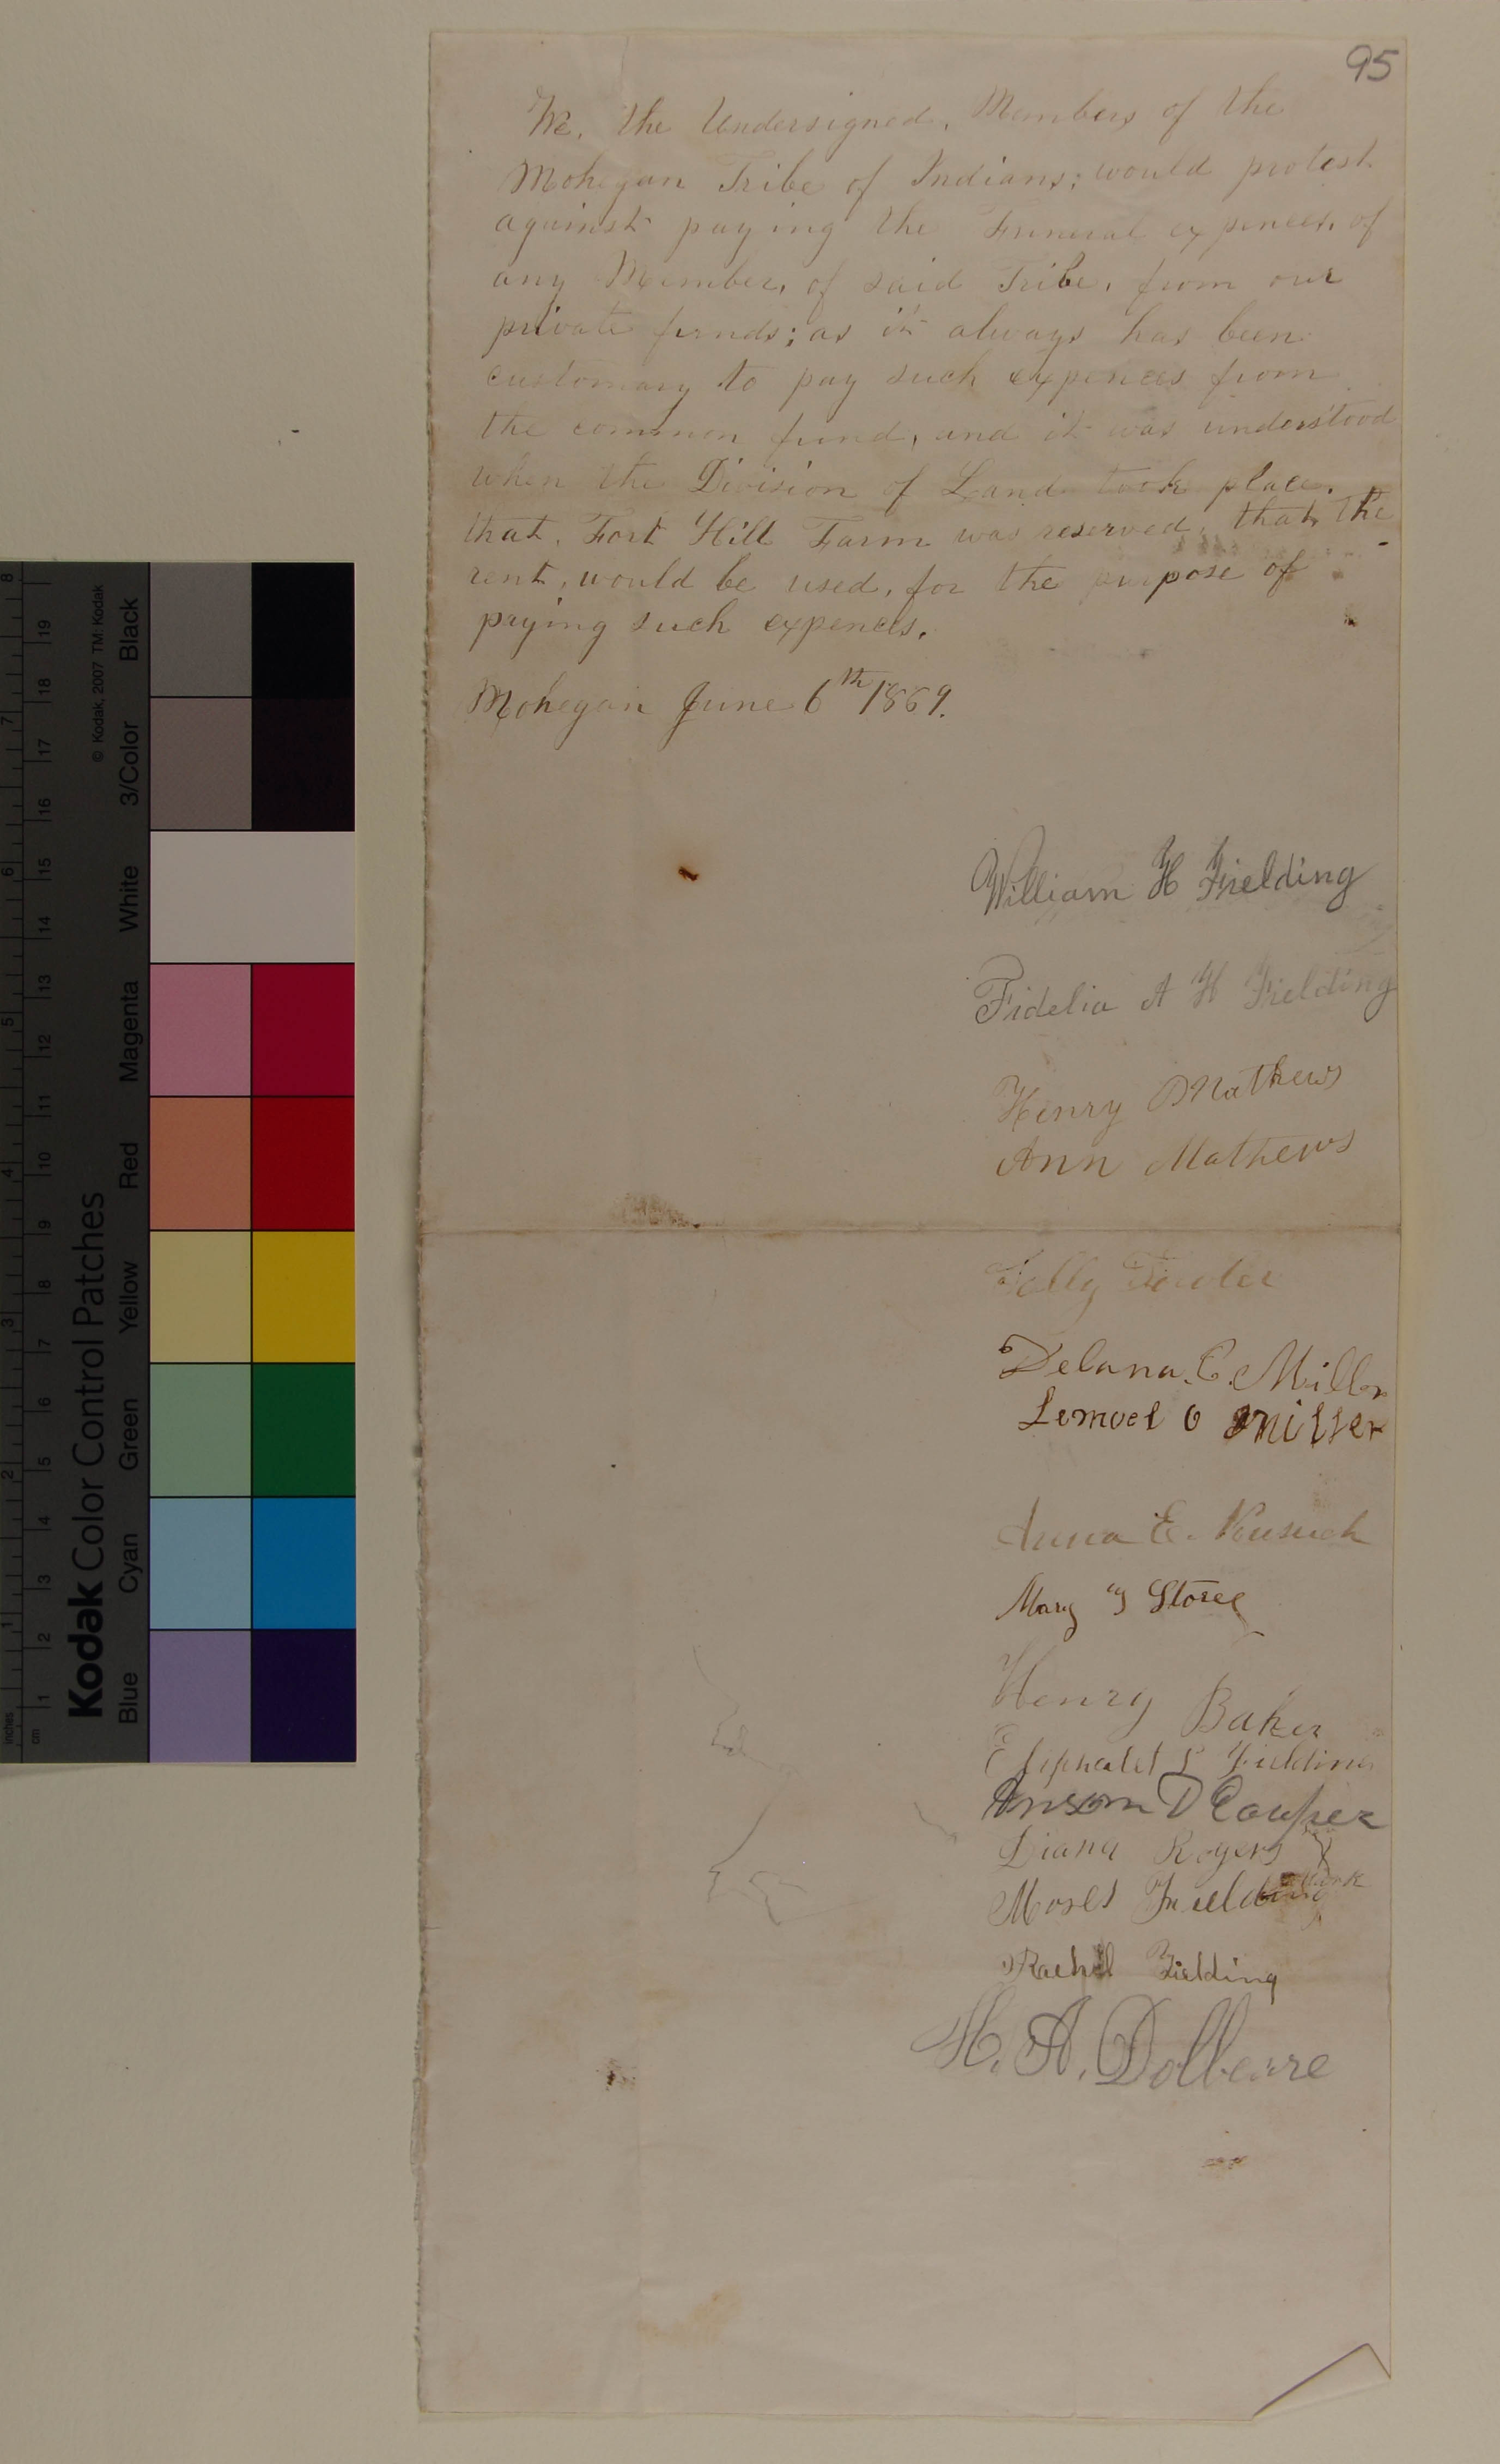 95
We, the Undersigned, Members of the
Mohegan Tribe of Indians; would protest
against paying the Funeral expences, of
any Member, of said Tribe, from our
private funds; as it always has been
customary to pay such expences from
the common fund, and it was understood
when the Division of Land took place,
that, Fort Hill Farm was reserved, that, the
rent, would be used, for the purpose of
paying such expences.
Mohegan June 6th 1869.
William H Fielding
Fidelia A H Fielding
Henry Mathews
Ann Mathews
Delana. C. Miller
Lemuel O Miller
Anna E.
Mary Storey
Henry Baker
Eliphalet Fielding
Anson D Cooper
Diana Rogers
Moses Fielding
Rachel Fielding
H. A. Dolbeare
© Kodak, 2007 TM: Kodak
Kodak Color Control Patches
Blue Cyan Green Yellow Red Magenta White 3/Color Black
inches 1 2 3 4 5 6 7 8
cm 1 2 3 4 5 6 7 8 9 10 11 12 13 14 15 16 17 18 19